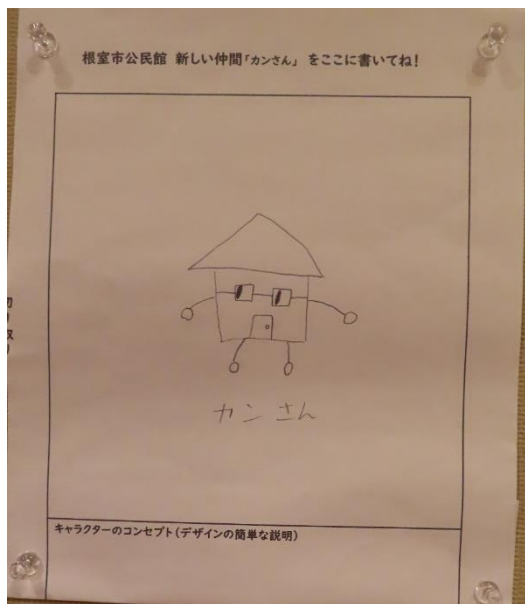 根室市公民館 新しい仲間「カンさん」 をここに書いてね!
カンさん
キャラクターのコンセプト(デザインの簡単な説明)